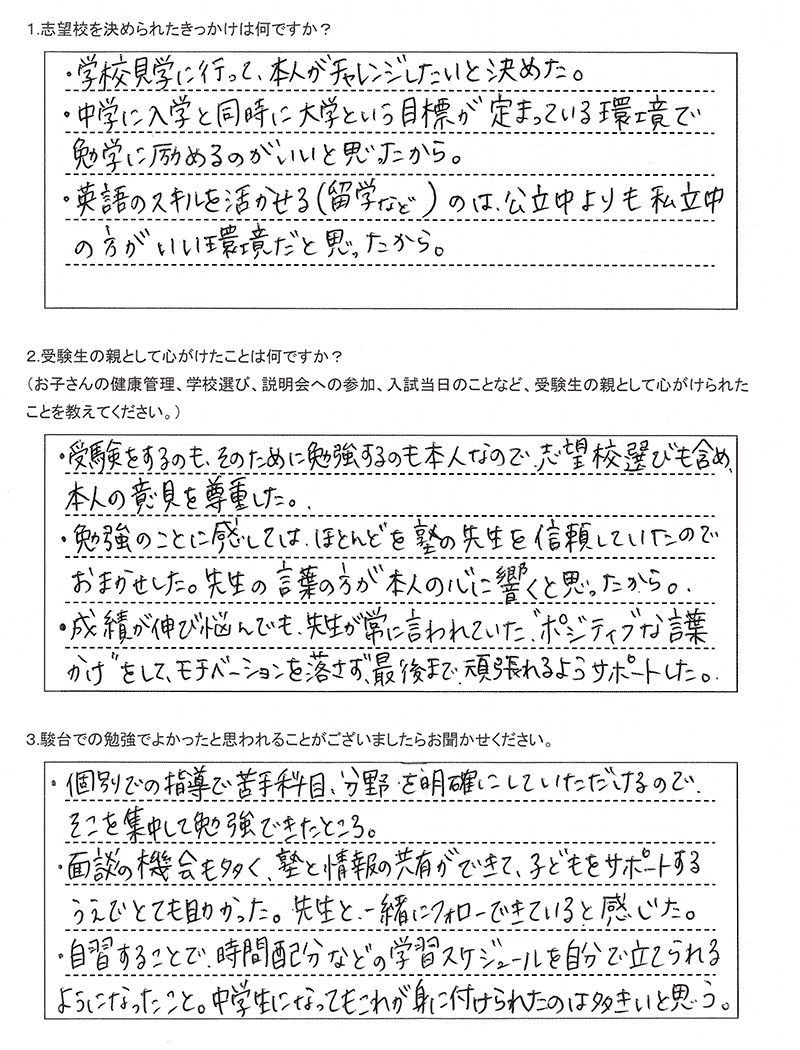 1.志望校を決められたきっかけは何ですか？
・学校見学に行って、本人がチャレンジしたいと決めた。
・中学に入学と同時に大学という目標が定まっている環境で
勉学に励めるのがいいと思ったから。
・英語のスキルを活かせる(留学など)のは、公立中よりも私立中
の方がいい環境だと思ったから。
2.受験生の親として心がけたことは何ですか？
（お子さんの健康管理、学校選び、説明会への参加、入試当日のことなど、受験生の親として心がけられた
ことを教えてください。）
・受験をするのも、そのために勉強するのも本人なので、志望校選びも含め、
本人の意見を尊重した。
・勉強のことに感しては、ほとんどを塾の先生を信頼していたので
おまかせした。先生の言葉の方が本人の心に響くと思ったから。
・成績が伸び悩んでも、先生が常に言われていた、“ポジティブな言葉
かけ”をして、モチベーションを落さず、最後まで、頑張れるようサポートした。
3.駿台での勉強でよかったと思われることがございましたらお聞かせください。
・個別での指導で苦手科目、分野を明確にしていただけるので、
そこを集中して勉強できたところ。
・面談の機会も多く、塾と情報の共有ができて、子どもをサポートする
うえでとても助かった。先生と、一緒にフォローできていると感じた。
・自習することで、時間配分などの学習スケジュールを自分で立てられる
ようになったこと。中学生になってもこれが身に付けられたのは多きいと思う。